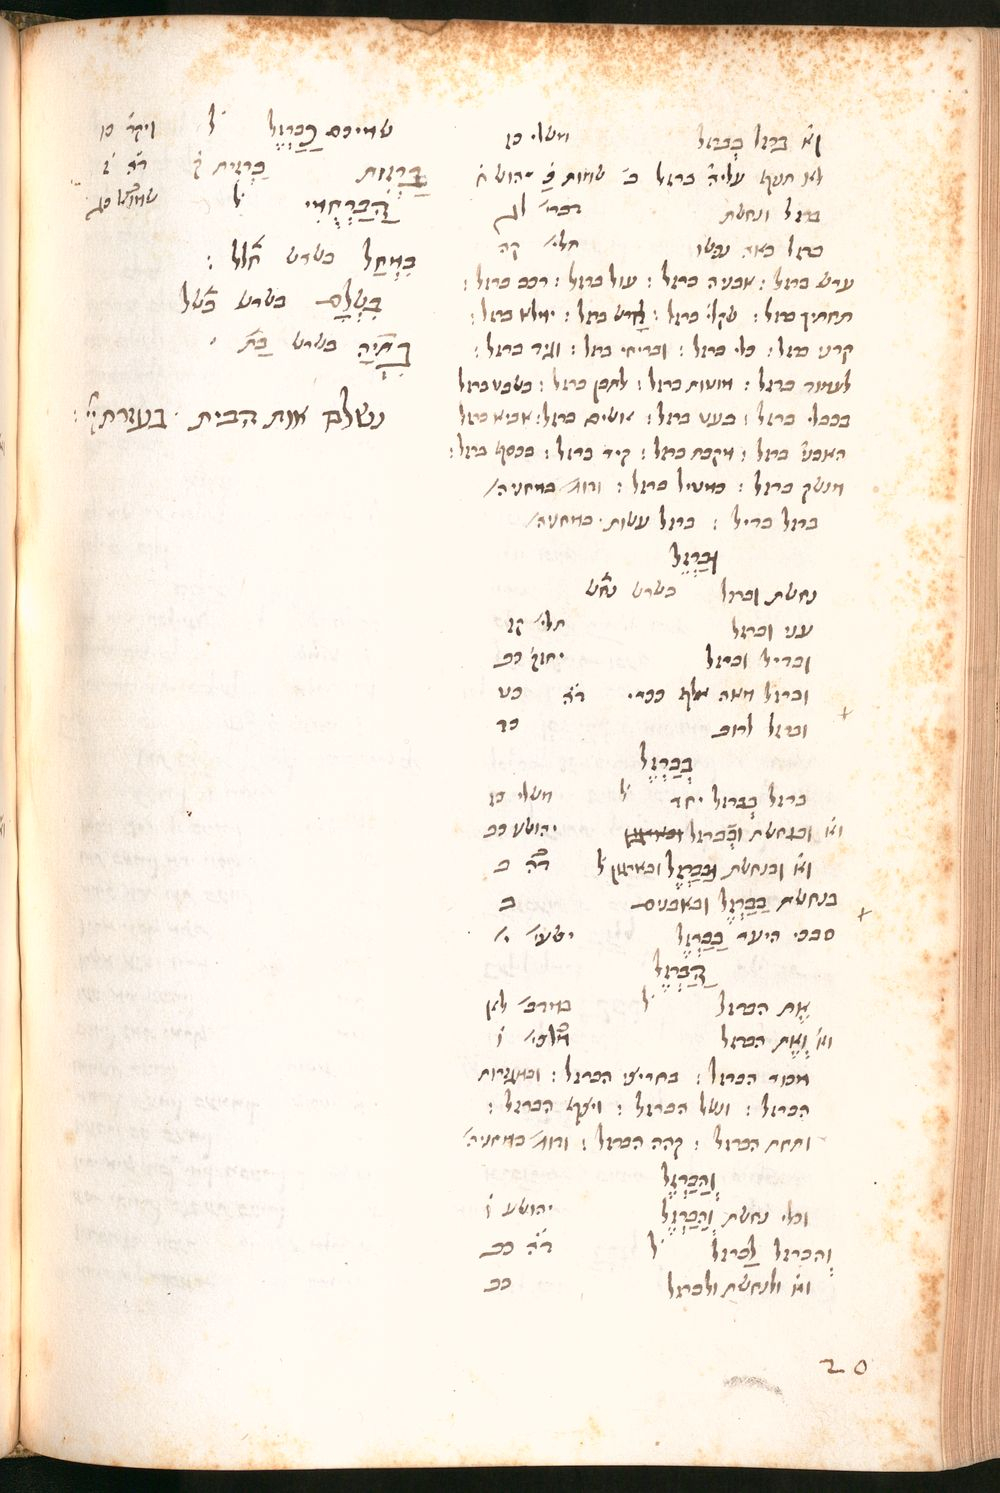 וא׳ ברזל בְּברזל משלי כז
לא תניף עליה׳ ברזל ב׳ שמות כ׳ יהוש׳ ח׳
ברזל ונחשת דברי׳ לג
ברזל באה נפשו תלי׳ קה
ערש ברזל : אבניה ברזל : עול ברזל : רכב ברזל :
שקלי׳ ברזל : לחרש ברזל : ימלא ברזל :
קרני ברזל : כלי ברזל : ובריחי ברזל : וגיד ברזל :
לעמוד ברזל : מוטות ברזל : לתבן ברזל : בשבט ברזל
בכבלי ברזל : בעט ברזל : אשים ברזל : אביא ברזל
מחבת ברזל : קיר ברזל : בכסף ברזל :
מנשק ברזל : כמטיל ברזל : ורוו׳ במחניה׳
ברזל בריל : ברזל עשות ׳ במחניה׳
וּבַרְזֶל
נחשת וברזל בשרש נחש
עני וברזל תלי׳ קז
ובדיל וברזל יחזק׳ כב
וברזל מאה אלף ככרי׳ ד״ה כט
וברזל לרוב כד
בְּבַרְזֶל
ברזל בְּברזל יחד ל׳ משלי כז
וא׳ ובנחשת ובברזל יהושע כב
וא׳ ובנחשת ובַבַּרְזֶל ובארגון ל׳ ד״ה ב
בנחשת בַבַּרְזֶל ובאבנים ב
סבכי היער בַּבַּרְזֶל ישעי׳ י׳
הַבַּרְזֶל
אֶת הברזל ל׳ במדב׳ לא
וא׳ וְאֶת הברזל מלכי׳ ו
מכור הברזל : בחריצי הברזל : ובמגזרות
הברזל : ונשל הברזל : ויצף הברזל :
ותחת הברזל : קהה הברזל : ורוו׳ במחניה׳
וְהַבַּרְזֶל
וכלי נחשת וְהַבַּרְזֶל יהושע ו
וְהברזל לַברזל ל׳ ד״ה כב
וא׳ ולנחשת ולברזל כב
שמיכם כַּבַּרְזֶל ל׳ ויקר׳ כו
בָּרְזוֹת בָּרְזִית ק׳ ד״ה ז
הַבַּרְחֻמִי ל׳ שמוא׳ כג
בשרש חלל :
בִּשְׁלָם בשרש בשל
בִּתְיָה בשרש בת ׳
נשלם אות הבית ׳ בעזרת י״י :
20